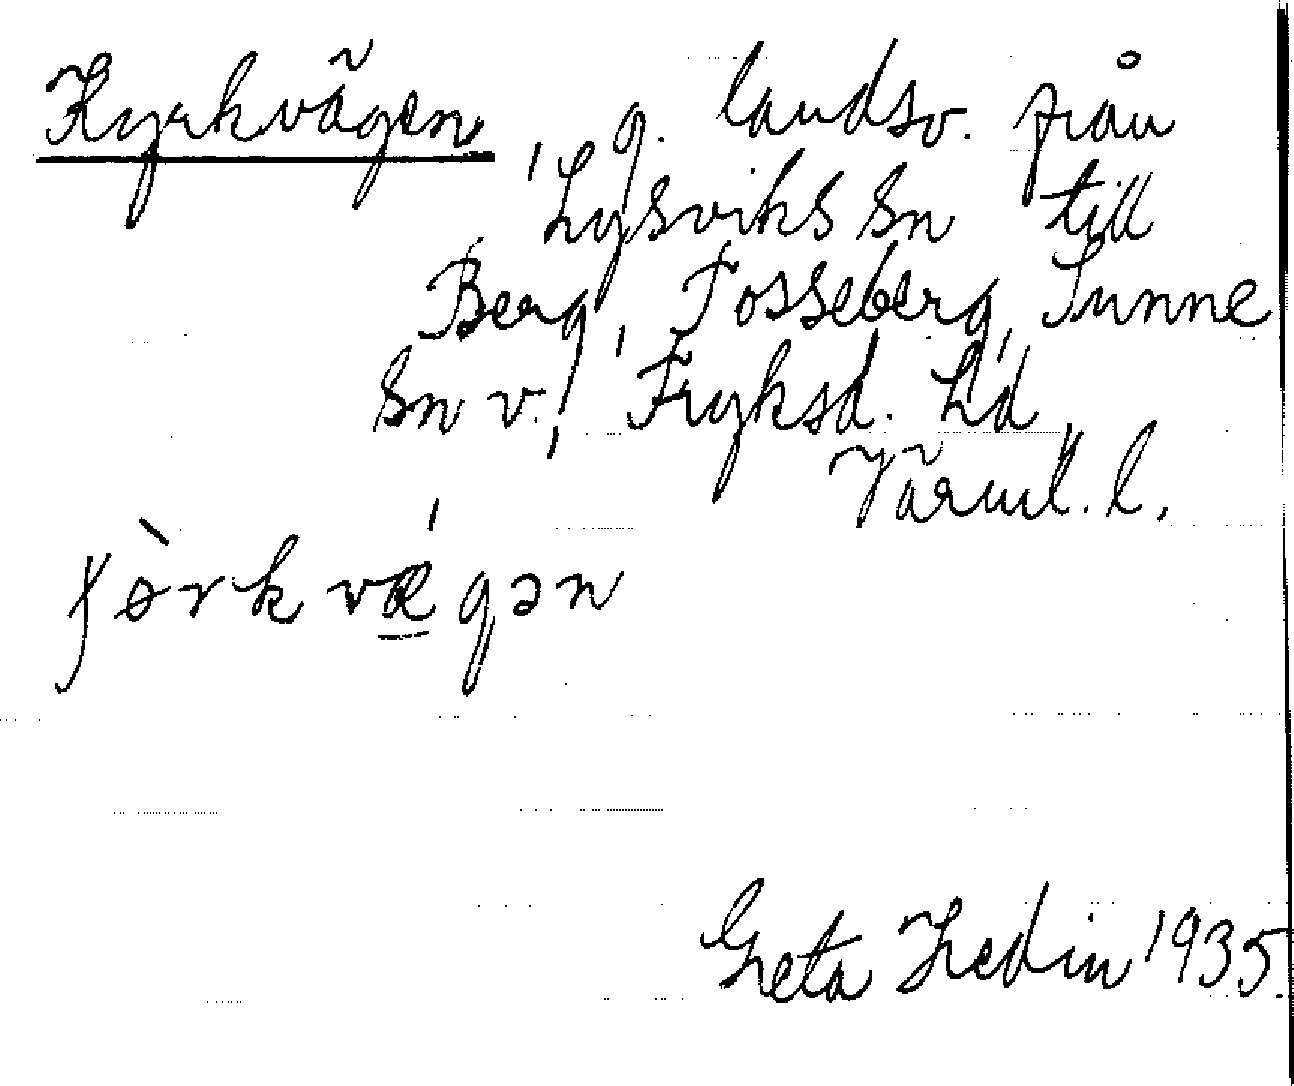 Kyrkvägen, g. landsv. från
Lysviks sn till
Berg, Fosseberg, Sunne
sn v., Fryksd. hd,
Värml. l.
Greta Hedin 1935